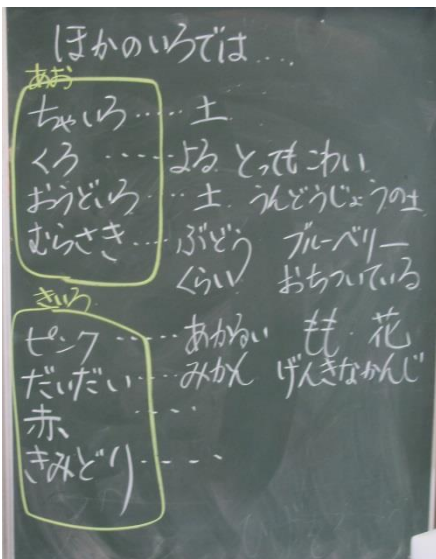 ほかのいろでは....
あお
ちゃいろ.....土
くろ.....よる とってもこわい
おうどいろ...土 うんどうじょうの土
むらさき....ぶどう ブルーベリー
くらい おちついている
きいろ
ピンク......あかるい もも・花
だいだい....みかん げんきなかんじ
赤....
きみどり.....